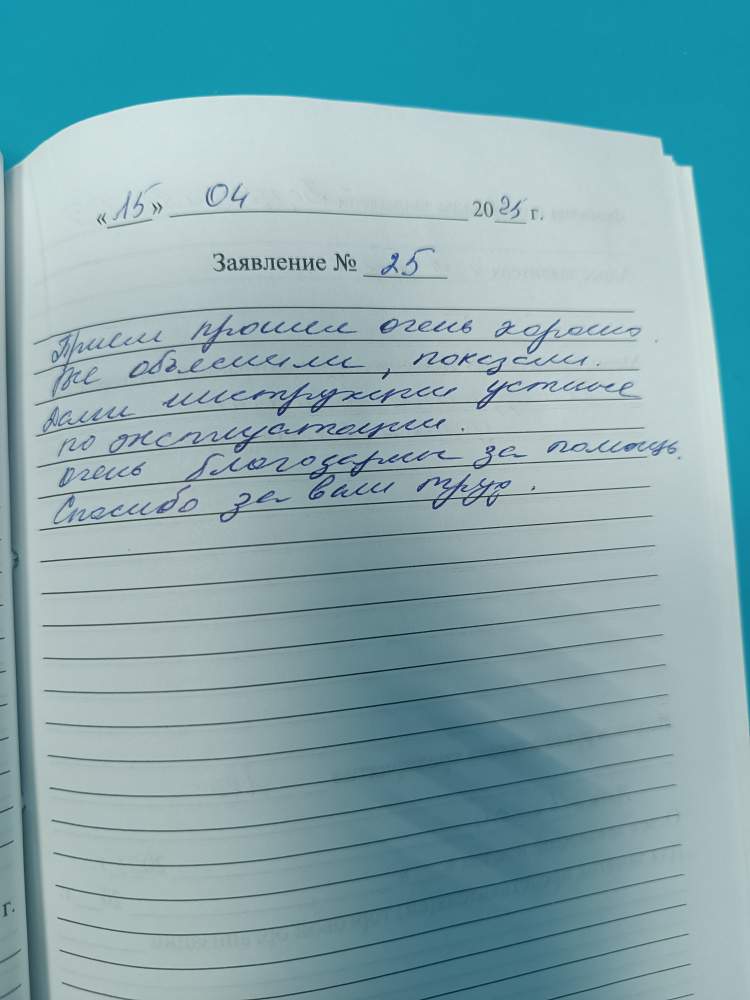 «15» 04 2025 г.
Заявление № 25
Прием прошел очень хорошо.
Все объяснили, показали.
Дали инструкции устные
по эксплуатации.
Очень благодарны за помощь.
Спасибо за ваш труд.
г.